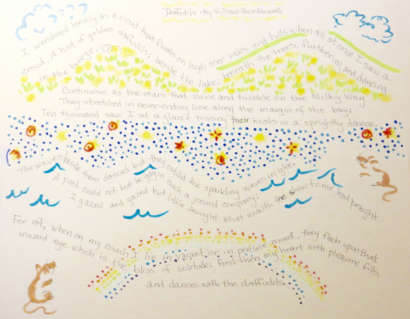 Daffodils - By William Wordsworth
I wandered lonely as a cloud that floats on high o'er vales and hills when all at once I saw a
crowd, A host of golden daffodils, beside the lake, beneath the trees, fluttering and dancing
in the breeze.
Continuous as the stars that shine and twinkle on the Milky Way
They stretched in never-ending line along the margin of the bay:
Ten thousand saw I at a glance tossing their heads in a sprightly dance.
The waves beside them danced, but they out did the sparkling waves in glee:
A poet could not but be gay in such a jocund company:
I gazed and gazed but little thought what wealth the show to me had brought
For oft, when on my couch I lie in vacant or in pensive mood, they flash upon that
inward eye which is the bliss of solitude: And then my heart with pleasure fills
and dances with the daffodils